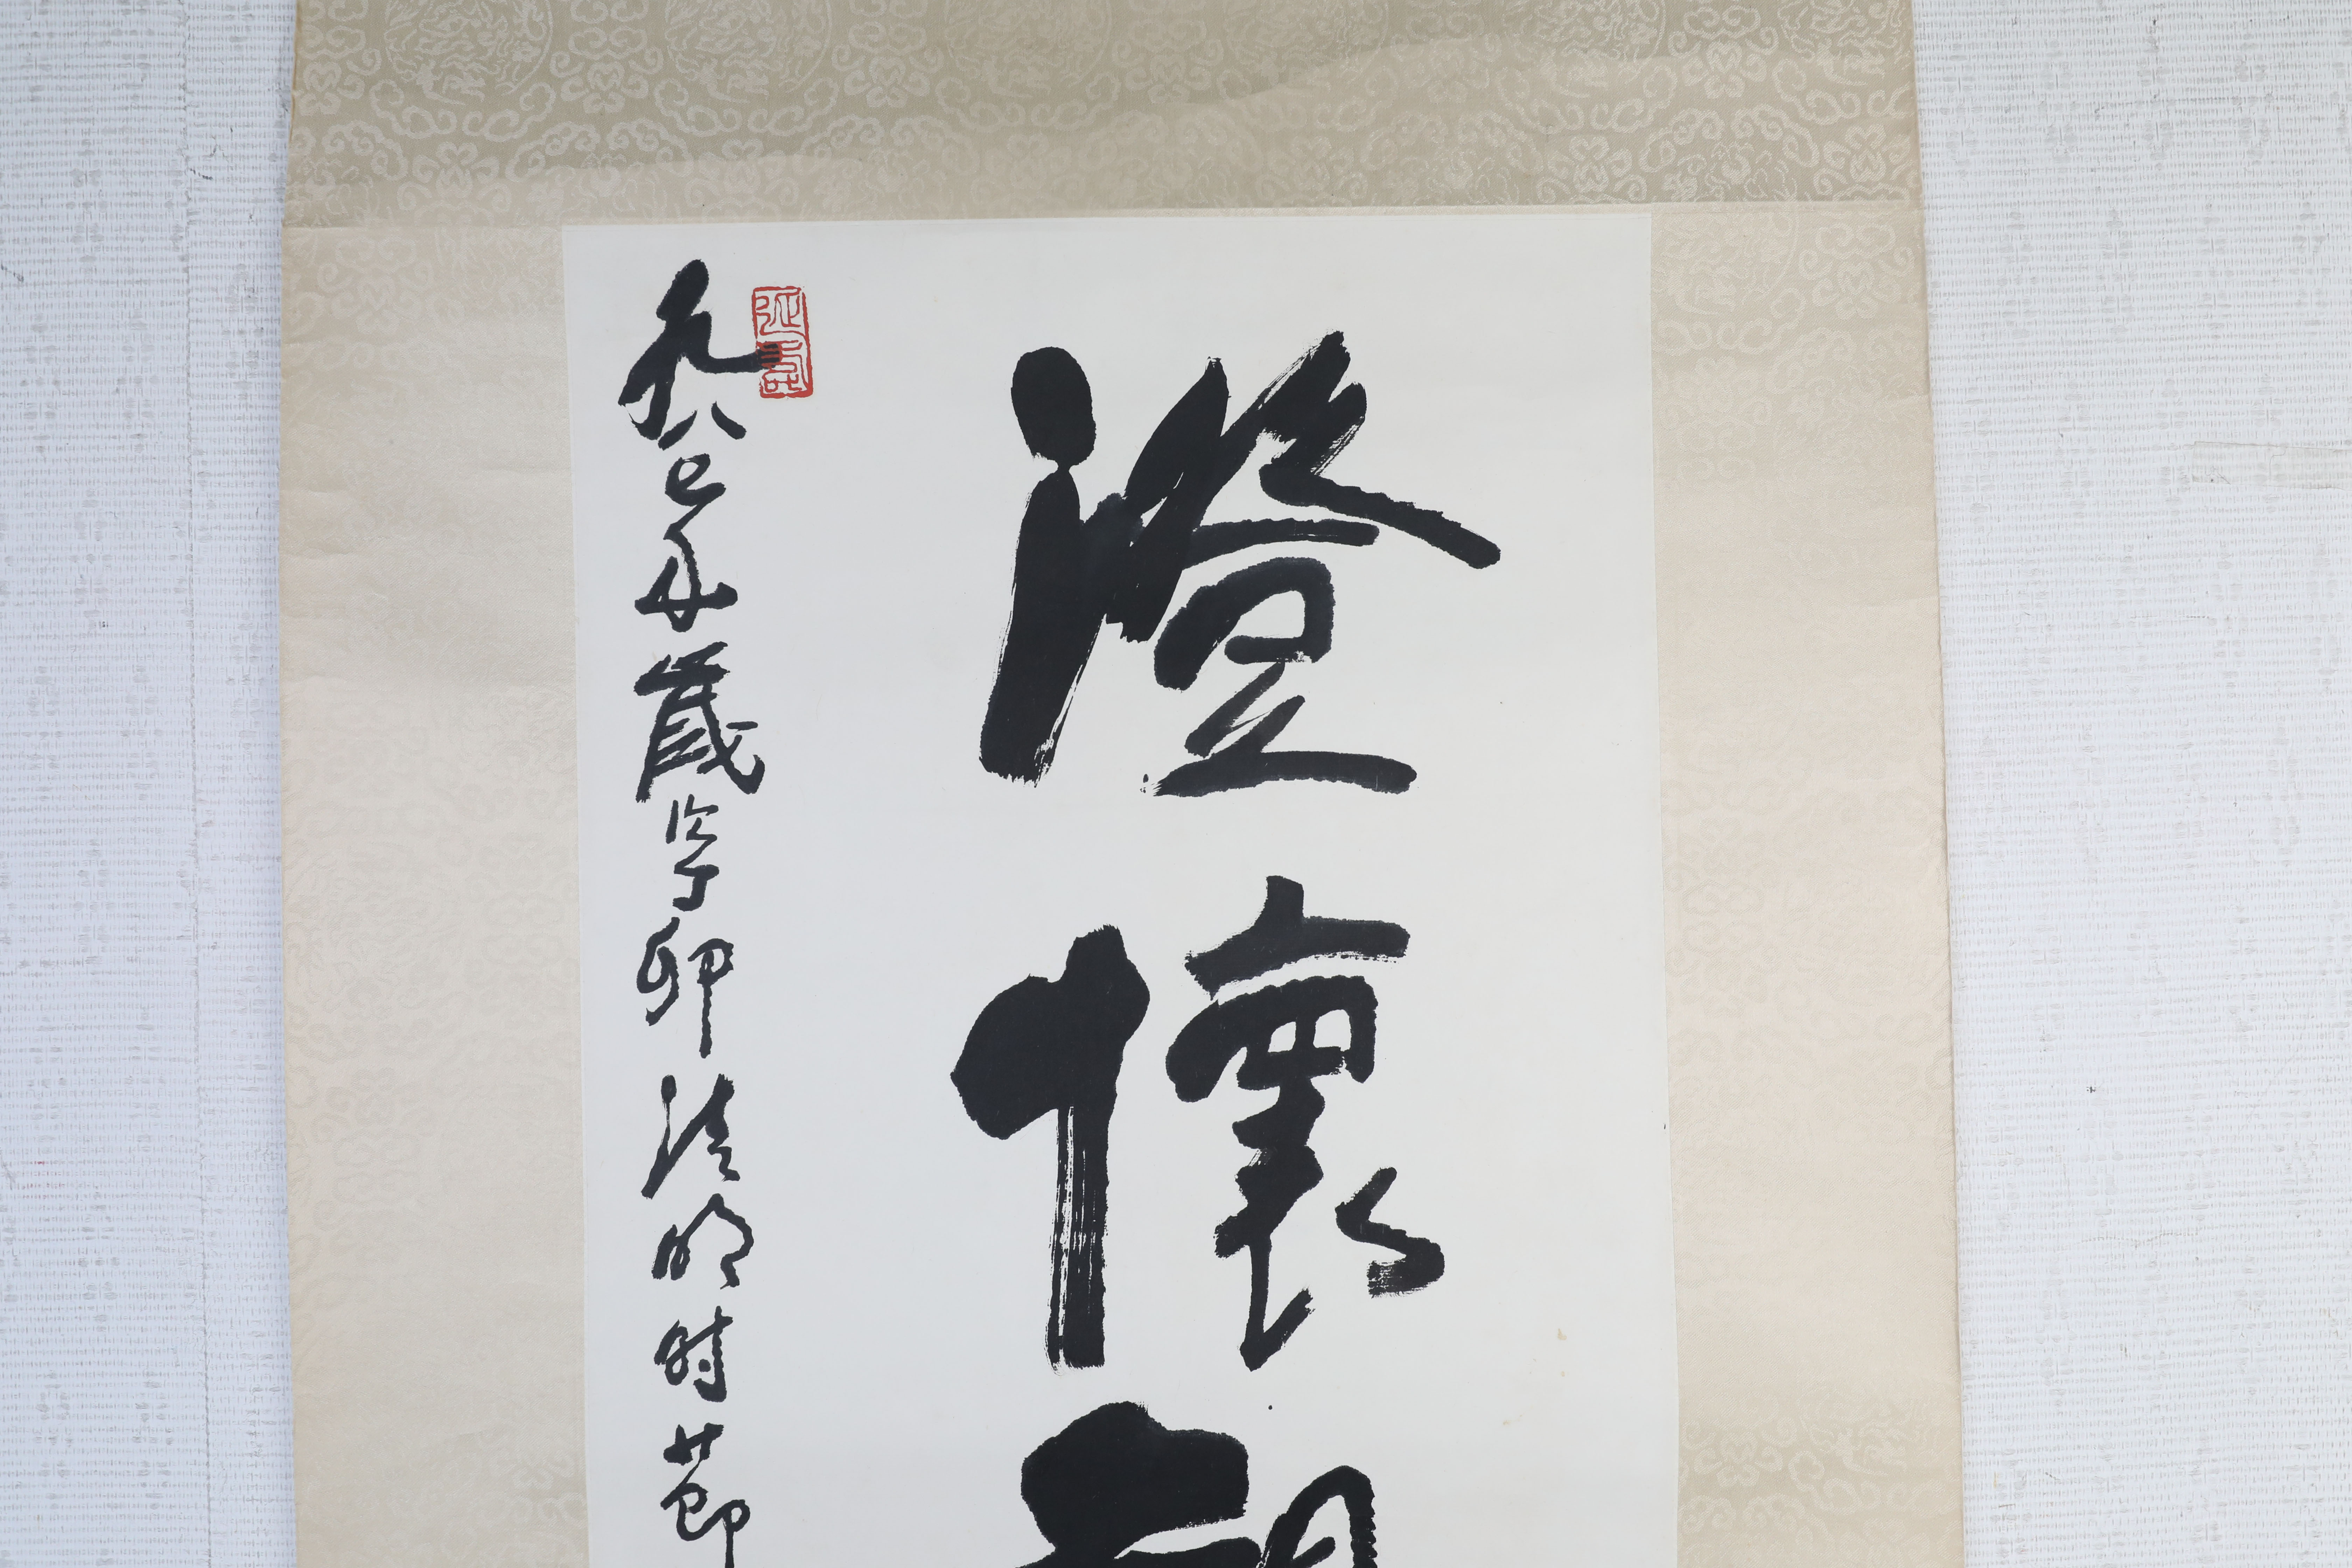 澄懷
九八七年歲次丁卯清明時節